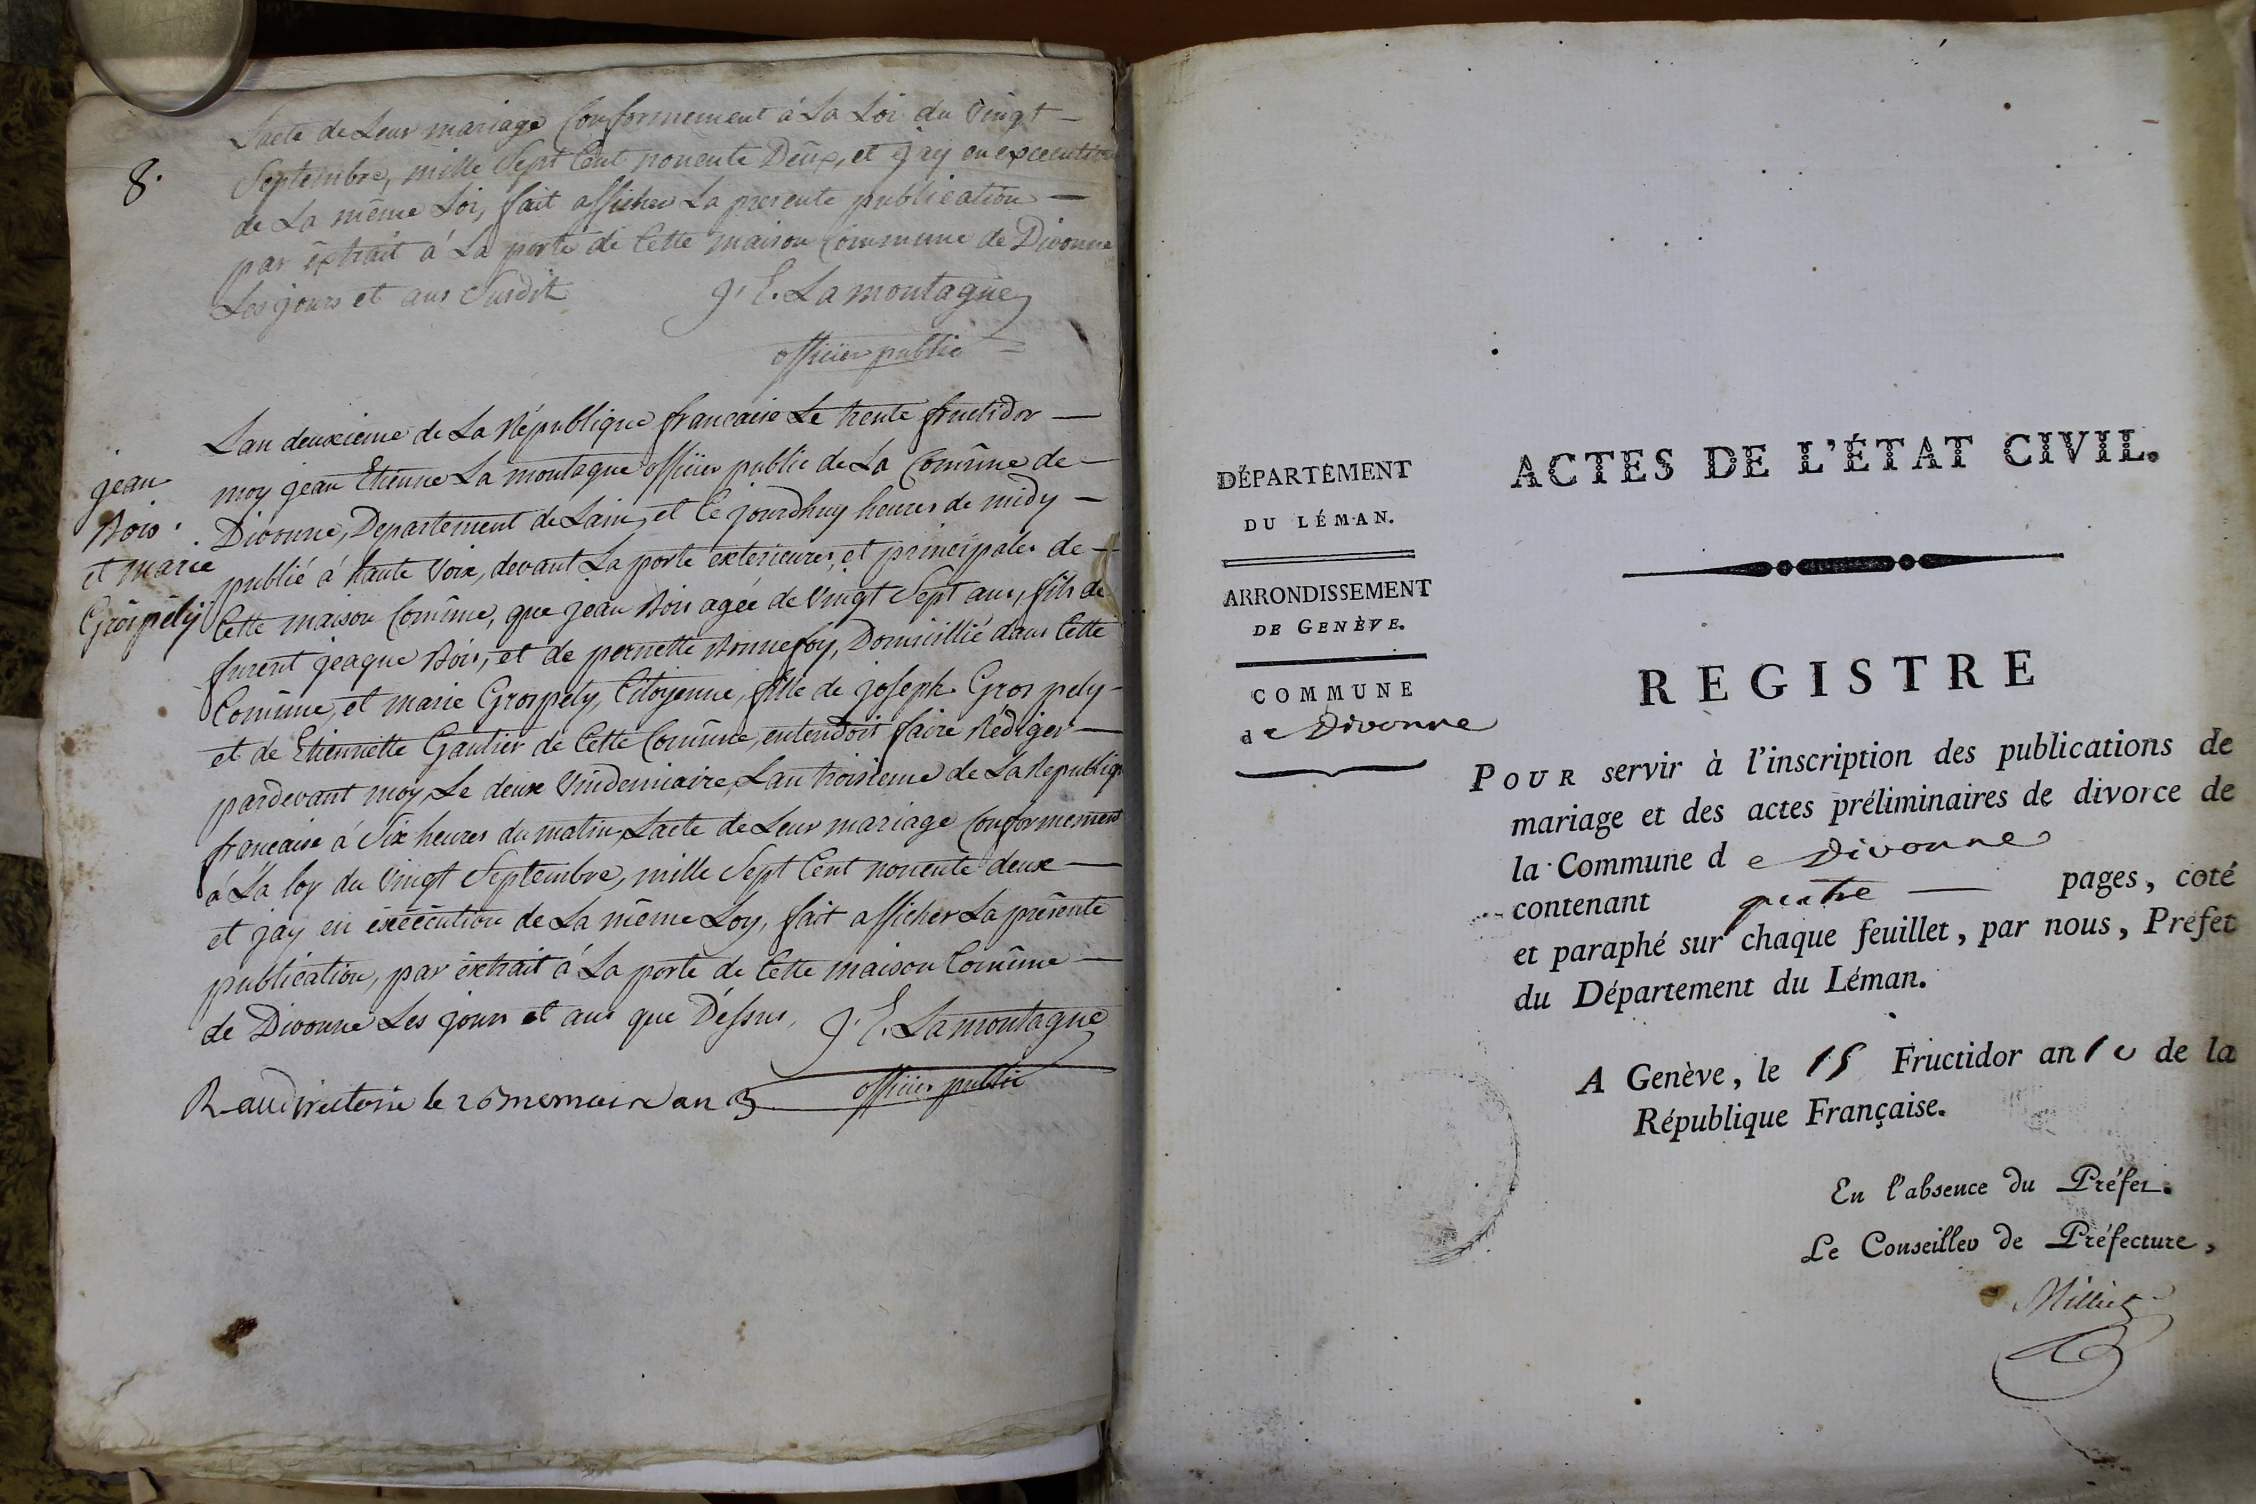 8.
Lacte de Leur mariage Conformement á La Loi du Vingt —
Septembre, mille Sept Cent nonente Deux, et jay en excecution
de La même Loi, fait afficher La presente publication —
par extrait á La porte de Cette maison Commune de Divonne
Les jours et ans Susdit J. E. Lamontagne
officier public
jean
Bois .
et marie
Grospely
Lan deuxieme de La République francaise Le trente fructidor —
moy jean Etienne La montagne officier public de La Comũne de —
Divonne, Departement de Lain, et Ce jourdhuy heures de midy —
publié á haute Voix, devant La porte exterieures, et principales de —
Cette maison Comũne, que jean Bois agée de Vingt Sept ans, fils de
furent jeaque Bois, et de pernette Bonnefoy, Domicillié dans Cette
Comũne, et marie Grospely, Citoyenne, fille de joseph Grospely —
et de Etiennette Gautier de Cette Comũne, entendoit faire Rédiger —
pardevant moy, Le deux Vindemiaire, Lan troisieme de La Republiq
francaise á Six heures du matin, Lacte de Leur mariage Conformement
á La loy du Vingt Septembre, mille Sept Cent nonente deux —
et jay en éxécution de La même Loy, fait afficher La présente
publication, par éxtrait á La porte de Cette maison Comũne —
de Divonne Les jours et ans que Déssus, J. E. Lamontagne
officier public
R au Directoire le 26 an 3
DÉPARTEMENT
DU LÉMAN.
ARRONDISSEMENT
DE GENÈVE.
COMMUNE
de Divonne
ACTES DE L'ÉTAT CIVIL.
REGISTRE
POUR servir à l'inscription des publications de
mariage et des actes préliminaires de divorce de
la Commune d e Divonne
contenant quatre — pages, coté
et paraphé sur chaque feuillet, par nous, Préfet
du Département du Léman.
A Genève, le 15 Fructidor an 10 de la
République Française.
En l'absence du Préfet.
Le Conseiller de Préfecture,